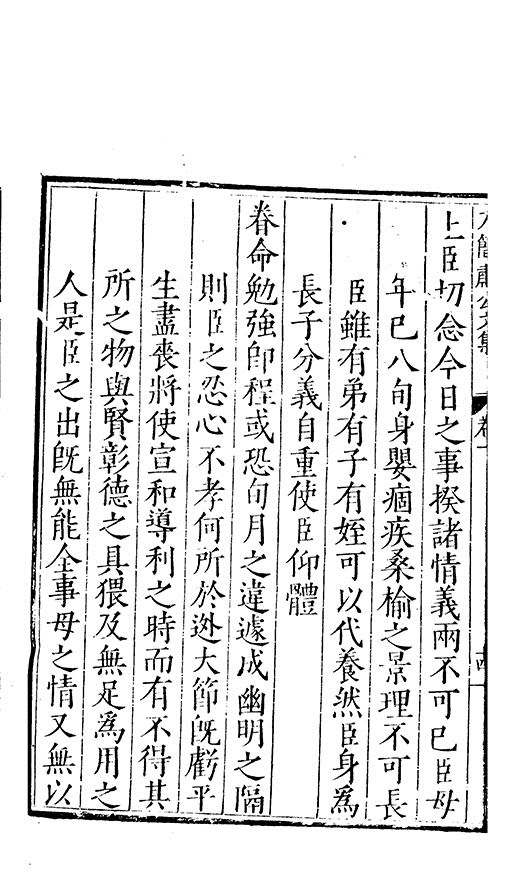 簡肅公文集 卷一 十四
上臣切念今日之事揆諸情義兩不可已臣母
年已八旬身嬰痼疾桑榆之景理不可長
臣雖有弟有子有姪可以代養然臣身爲
長子分義自重使臣仰體
眷命勉強即程或恐旬月之違遽成幽明之隔
則臣之忍心不孝何所於逃大節既虧平
生盡喪將使宣和導利之時而有不得其
所之物與賢彰德之具猥及無足爲用之
人是臣之出既無能全事母之情又無以